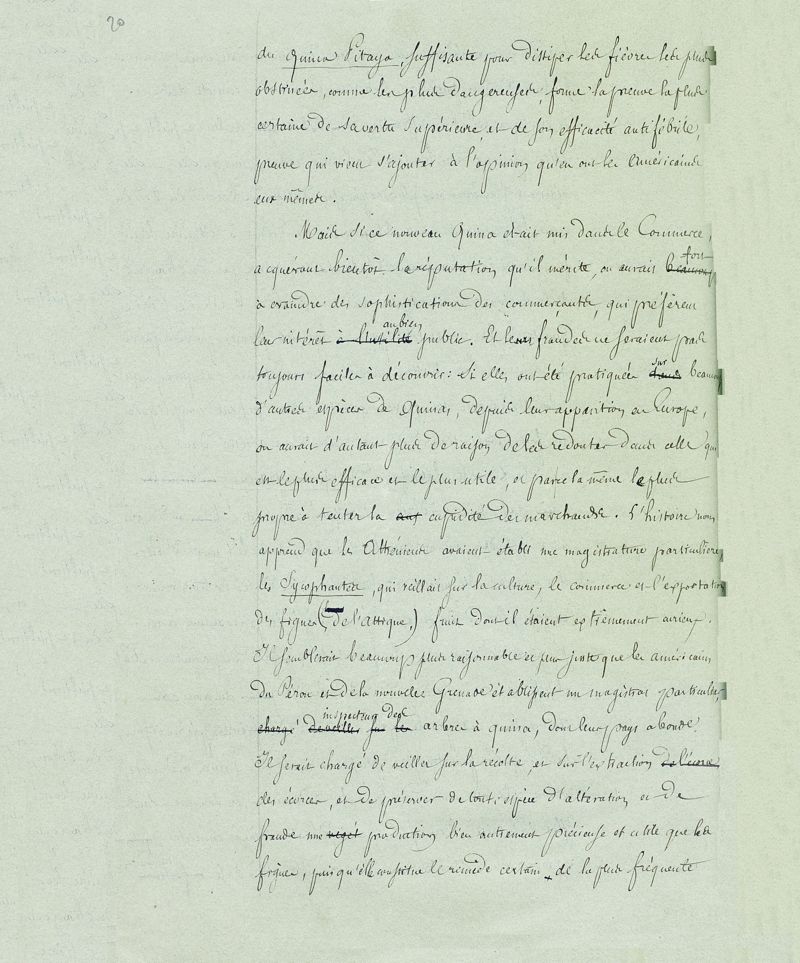 20
du Quina Pitaya, suffisante pour dissiper les fièvres les plus
obstinées, comme les plus dangereuses, forme la preuve la plus
certaine de sa vertu supérieure, et de son efficacité antifébrile,
preuve qui vient s'ajouter à l'opinion qu'en ont les américains
eux mêmes.
Mais si ce nouveau Quina était mis dans le Commerce,
acquérant bientôt la réputation qu'il mérite, on aurait beaucoup fort
à craindre des sophistications des commerçants, qui préfèrent
leur intérêt à l'utilité au bien public. Et les fraudes ne seraient pas
toujours faciles à découvrir: si elles ont été pratiquées dans sur beaucoup
d'autres espèces de Quinas, depuis leur apparition en Europe,
on aurait d'autant plus de raison de les redouter dans celle qui
est le plus efficace et le plus utile, et par cela même le plus
propre à tenter la cupidité des marchands. L'histoire nous
apprend que les Athéniens avaient établi une magistrature particulière,
les Sycophantes, qui veillait sur la culture, le commerce et l'exportation
des figues (de l'attique,) fruit dont il étaient extrêmement curieux.
Il semblerait beaucoup plus raisonnable et plus juste que les américains
du Pérou et de la nouvelle Grenade établissent un magistrat particulier,
chargé de veiller sur les inspecteur des arbres à quina, dont leur pays abonde.
Il serait chargé de veiller sur la récolte, et sur l'extraction de l'écorce
des écorces, et de préserver de toute espèce d'altération et de
fraude une végét production bien autrement précieuse et utile que les
figues, puisqu'elle constitue le remède certain de la plus fréquente